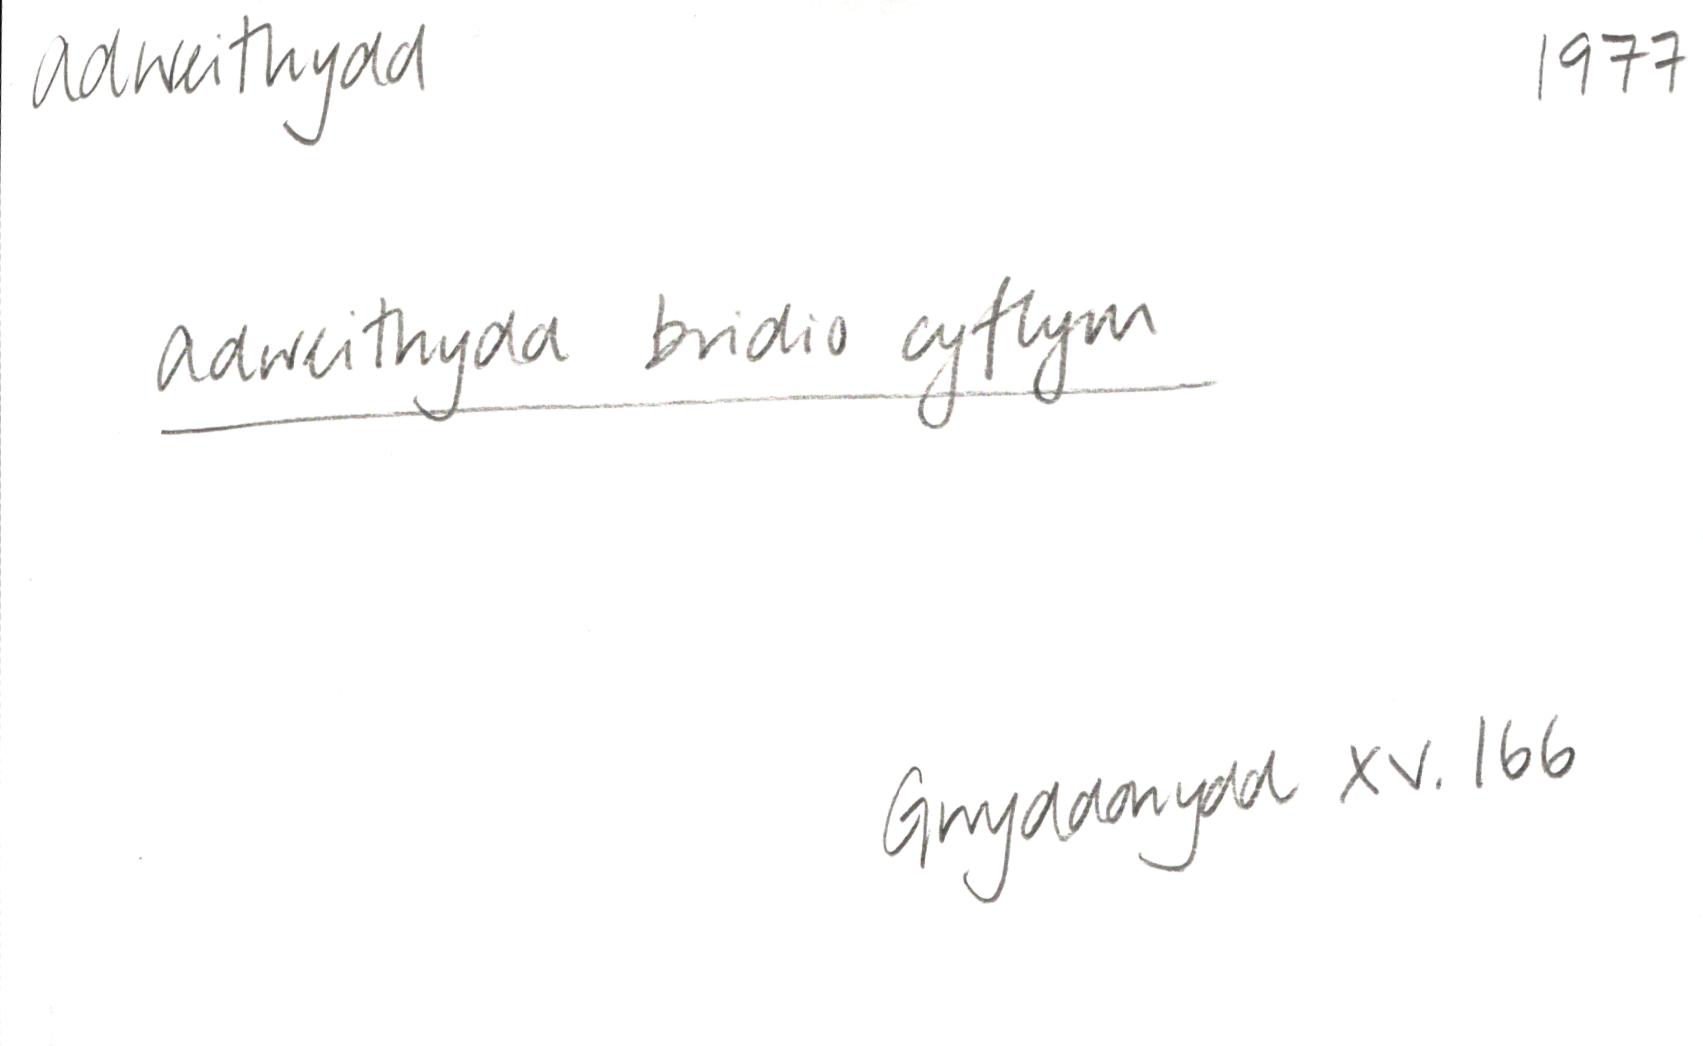 adweithydd 1977
adweithydd bridio cyflym
Gwyddonydd XV. 166